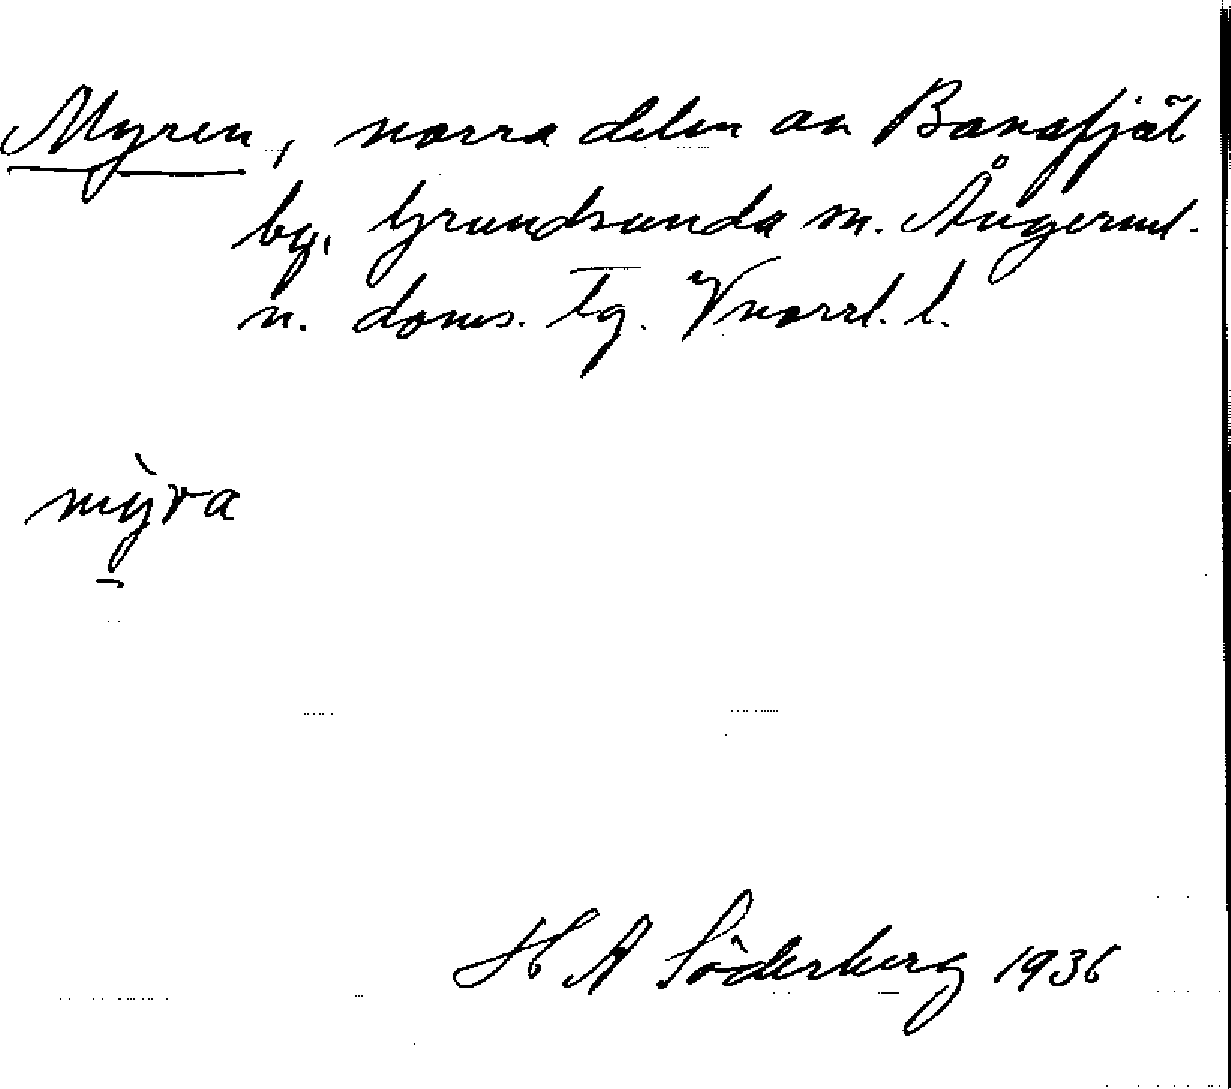 Myren, norra delen av Banafjäl
by, Grundsunda sn. Ångerml.
n. doms. Tg. Vnorrl. l.
mỳra
H A Söderberg 1936